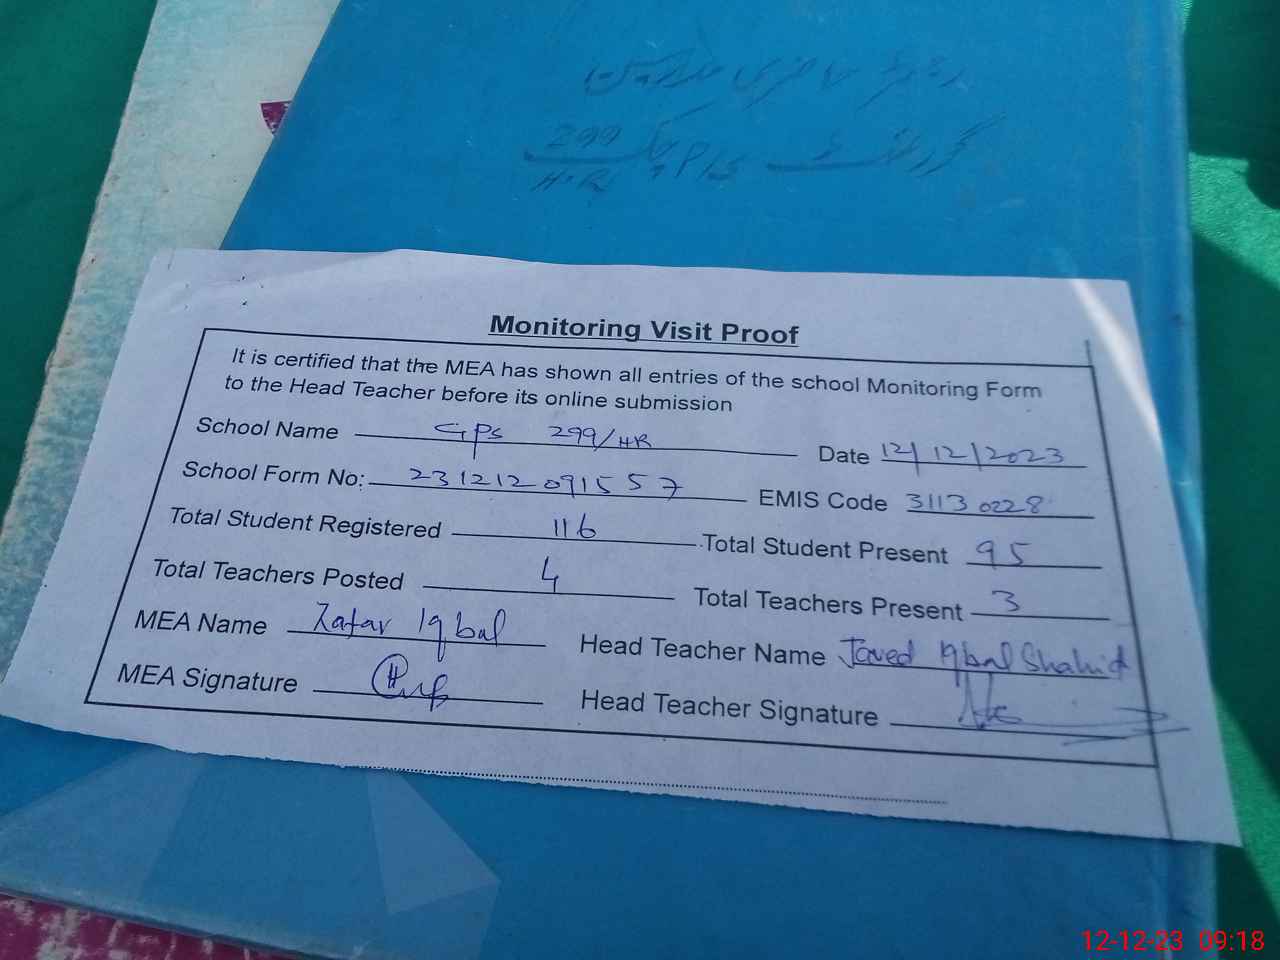 رجسٹر حاضری مدرسین
گورنمنٹ پرائمری چک 299
H.R
Monitoring Visit Proof
It is certified that the MEA has shown all entries of the school Monitoring Form
to the Head Teacher before its online submission
School Name GPS 299/HR Date 12/12/2023
School Form No: 231212091557 EMIS Code 31130228
Total Student Registered 116 Total Student Present 95
Total Teachers Posted 4 Total Teachers Present 3
MEA Name Zafar Iqbal Head Teacher Name Javed Iqbal Shahid
MEA Signature Head Teacher Signature
12-12-23 09:18